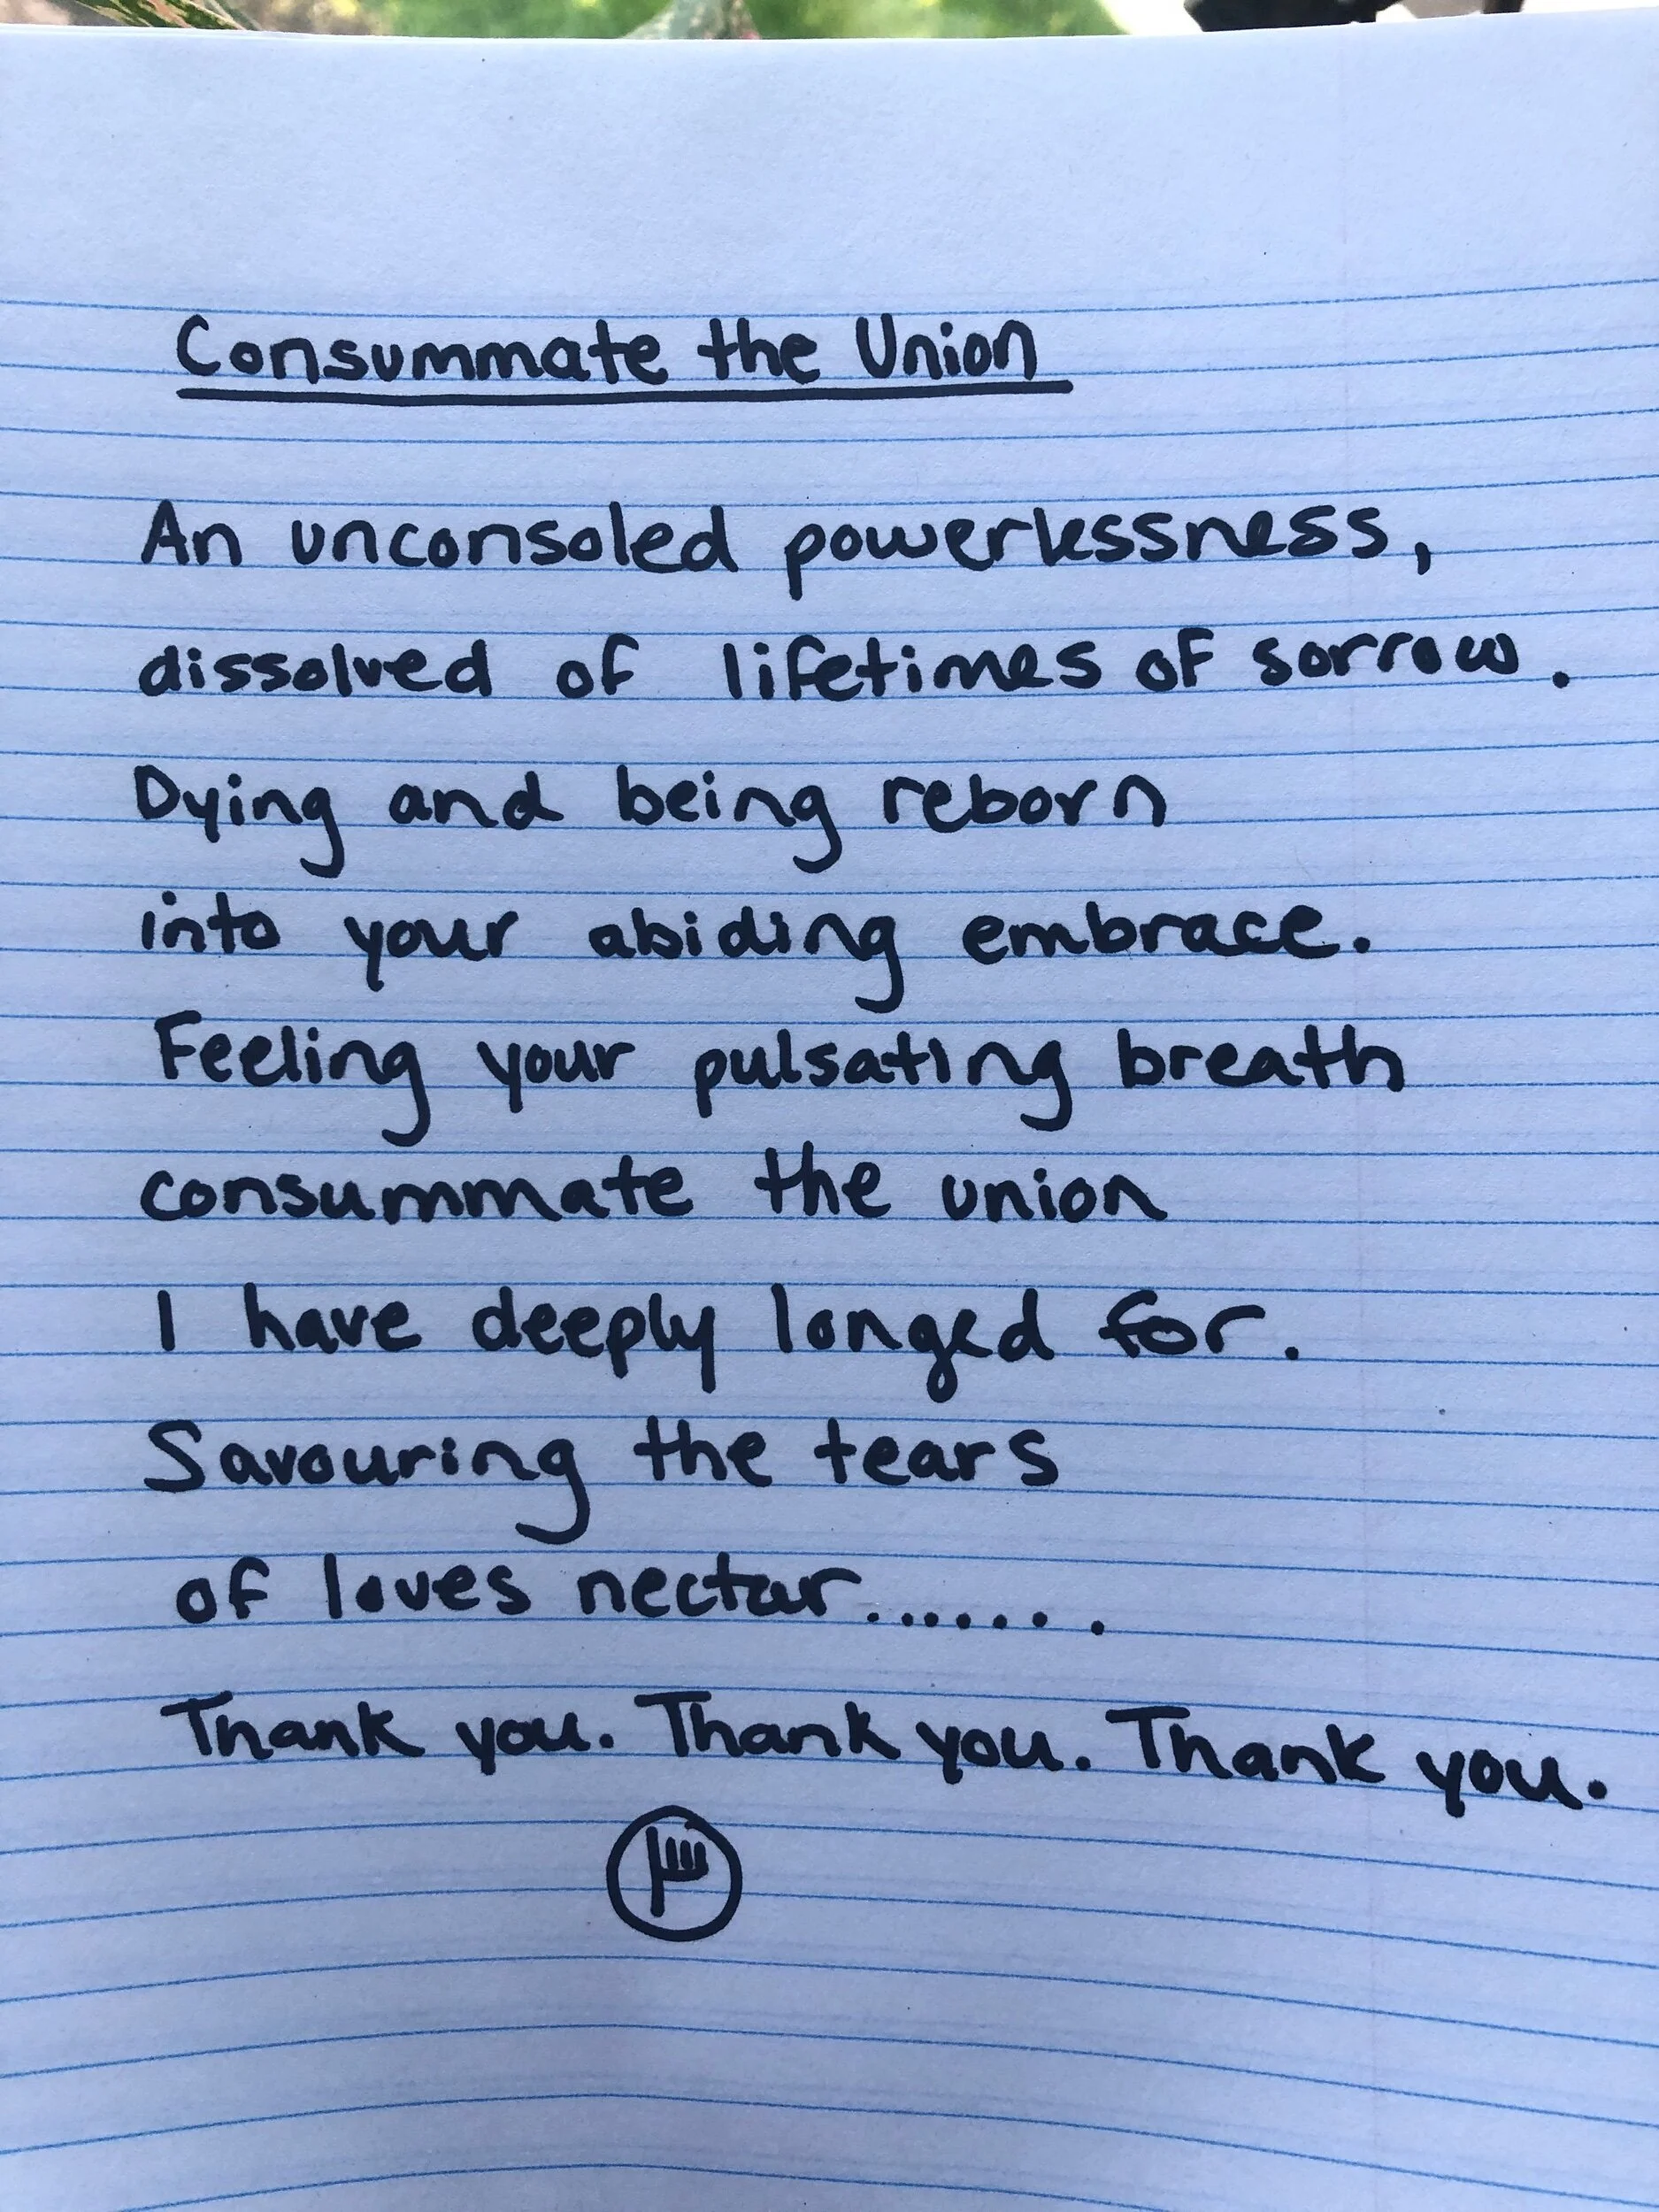 Consummate the Union
An unconsoled powerlessness,
dissolved of lifetimes of sorrow.
Dying and being reborn
into your abiding embrace.
Feeling your pulsating breath
consummate the union
I have deeply longed for.
Savouring the tears
of loves nectar.......
Thank you. Thank you. Thank you.